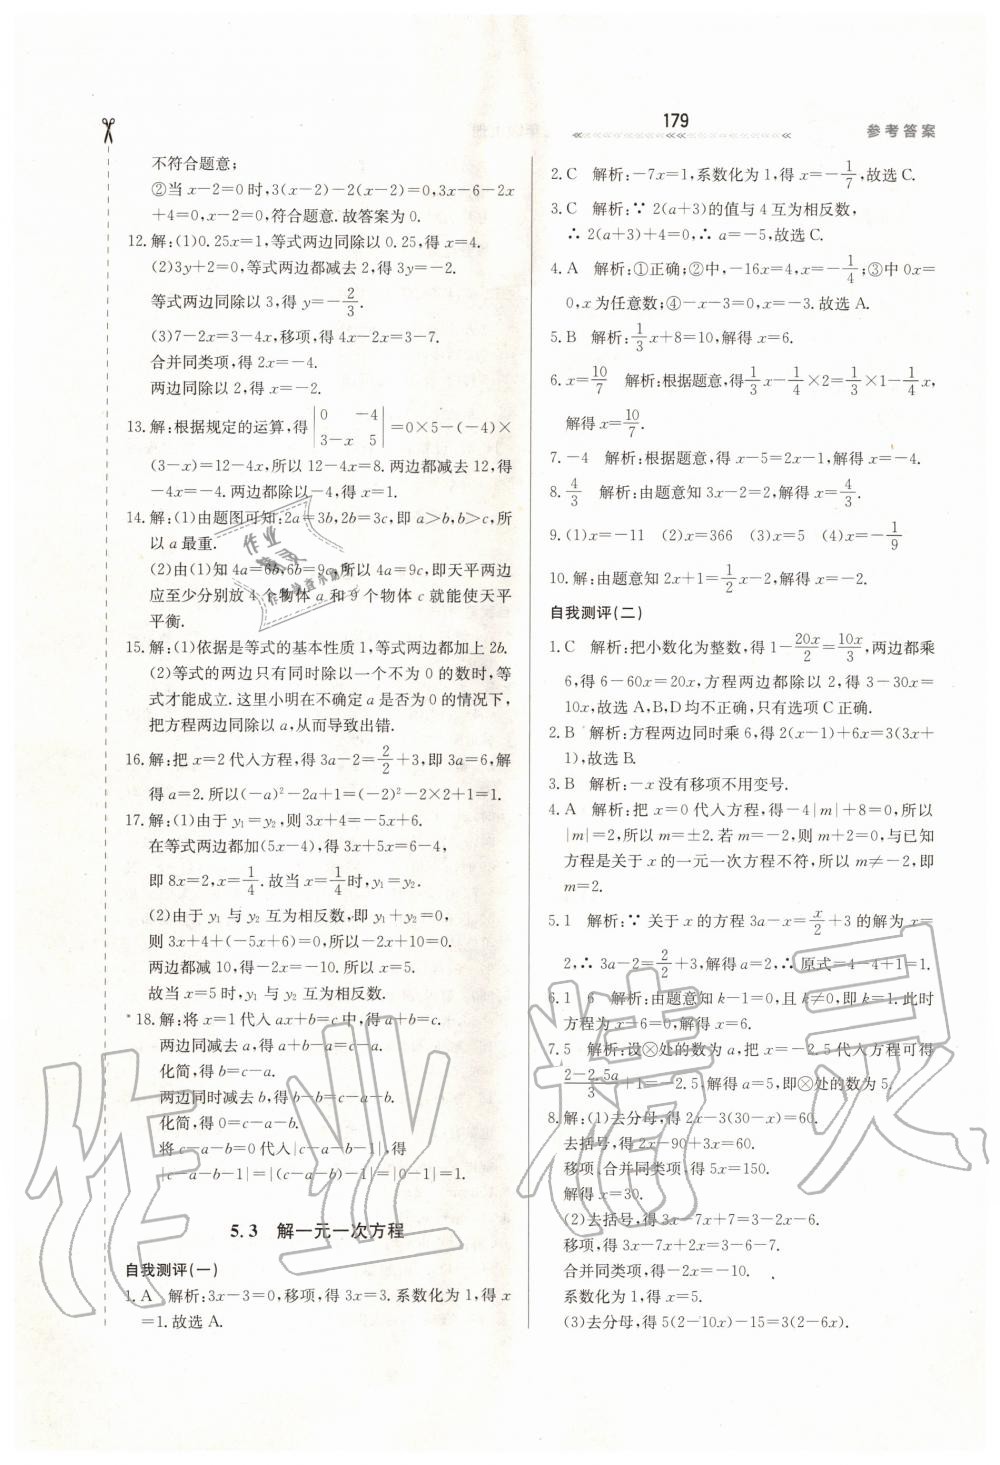 179
参考答案
不符合题意;
②当 x−2=0 时,3(x−2)−2(x−2)=0,3x−6−2x
+4=0,x−2=0,符合题意.故答案为 0.
12.解:(1)0.25x=1,等式两边同除以 0.25,得 x=4.
(2)3y+2=0,等式两边都减去 2,得 3y=−2.
等式两边同除以 3,得 y=−2/3.
(3)7−2x=3−4x,移项,得 4x−2x=3−7.
合并同类项,得 2x=−4.
两边同除以 2,得 x=−2.
13.解:根据规定的运算,得 |0 −4|
|3−x 5| =0×5−(−4)×
(3−x)=12−4x,所以 12−4x=8.两边都减去 12,得
−4x=−4.两边都除以−4,得 x=1.
14.解:(1)由题图可知:2a=3b,2b=3c,即 a>b,b>c,所
以 a 最重.
(2)由(1)知 4a=6b,6b=9c,所以 4a=9c,即天平两边
应至少分别放 4 个物体 a 和 9 个物体 c 就能使天平
平衡.
15.解:(1)依据是等式的基本性质 1,等式两边都加上 2b.
(2)等式的两边只有同时除以一个不为 0 的数时,等
式才能成立.这里小明在不确定 a 是否为 0 的情况下,
把方程两边同除以 a,从而导致出错.
16.解:把 x=2 代入方程,得 3a−2=2/2+3,即 3a=6,解
得 a=2.所以(−a)²−2a+1=(−2)²−2×2+1=1.
17.解:(1)由于 y₁=y₂,则 3x+4=−5x+6.
在等式两边都加(5x−4),得 3x+5x=6−4,
即 8x=2,x=1/4.故当 x=1/4时,y₁=y₂.
(2)由于 y₁ 与 y₂ 互为相反数,即 y₁+y₂=0,
则 3x+4+(−5x+6)=0,即−2x+10=0.
两边都减 10,得−2x=−10.所以 x=5.
故当 x=5 时,y₁ 与 y₂ 互为相反数.
*18.解:将 x=1 代入 ax+b=c 中,得 a+b=c.
两边同减去 a,得 a+b−a=c−a.
化简,得 b=c−a.
两边同时减去 b,得 b−b=c−a−b.
化简,得 0=c−a−b.
将 c−a−b=0 代入|c−a−b−1|,得
|c−a−b−1|=|(c−a−b)−1|=|0−1|=1.
5.3 解一元一次方程
自我测评(一)
1.A 解析:3x−3=0,移项,得 3x=3.系数化为 1,得 x
=1.故选 A.
2.C 解析:−7x=1,系数化为 1,得 x=−1/7,故选 C.
3.C 解析:∵ 2(a+3)的值与 4 互为相反数,
∴ 2(a+3)+4=0,∴ a=−5,故选 C.
4.A 解析:①正确;②中,−16x=4,x=−1/4;③中 0x=
0,x 为任意数;④−x−3=0,x=−3.故选 A.
5.B 解析:1/3x+8=10,解得 x=6.
6.x=10/7 解析:根据题意,得1/3x−1/4×2=1/3×1−1/4x,
解得 x=10/7.
7.−4 解析:根据题意,得 x−5=2x−1,解得 x=−4.
8.4/3 解析:由题意知 3x−2=2,解得 x=4/3.
9.(1)x=−11 (2)x=366 (3)x=5 (4)x=−1/9
10.解:由题意知 2x+1=1/2x−2,解得 x=−2.
自我测评(二)
1.C 解析:把小数化为整数,得 1−20x/2=10x/3,两边都乘
6,得 6−60x=20x,方程两边都除以 2,得 3−30x=
10x,故选 A、B、D均不正确,只有选项 C正确.
2.B 解析:方程两边同时乘 6,得 2(x−1)+6x=3(3x+
1),故选 B.
3.B 解析:−x 没有移项不用变号.
4.A 解析:把 x=0 代入方程,得−4|m|+8=0,所以
|m|=2,所以 m=±2.若 m=−2,则 m+2=0,与已知
方程是关于 x 的一元一次方程不符,所以 m≠−2,即
m=2.
5.1 解析:∵ 关于 x 的方程 3a−x=x/2+3 的解为 x=
2,∴ 3a−2=2/2+3,解得 a=2,∴ 原式=4−4+1=1.
6.1 6 解析:由题意知 k−1=0,且 k≠0,即 k=1.此时
方程为 x−6=0,解得 x=6.
7.5 解析:设⊗处的数为 a,把 x=−2.5代入方程可得
2−2.5a/3+1=−2.5,解得 a=5,即⊗处的数为 5.
8.解:(1)去分母,得 2x−3(30−x)=60.
去括号,得 2x−90+3x=60.
移项、合并同类项,得 5x=150.
解得 x=30.
(2)去括号,得 3x−7x+7=3−2x−6.
移项,得 3x−7x+2x=3−6−7.
合并同类项,得−2x=−10.
系数化为 1,得 x=5.
(3)去分母,得 5(2−10x)−15=3(2−6x).
作业精灵